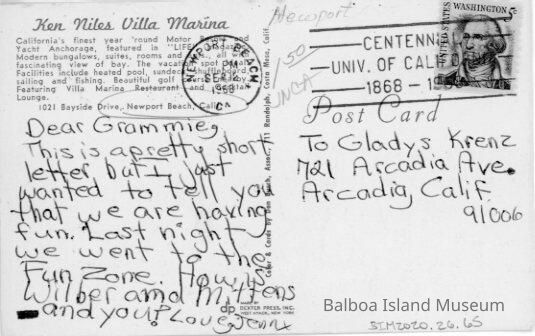 Ken Niles Villa Marina
California's finest year 'round Motor
Yacht Anchorage, featured in "LIFE"
Modern bungalows, suites, rooms and
fascinating view of the bay. The vacation spot
Facilities include heated pool, sundeck, shuffleboard,
sailing and fishing. Beautiful golf
Featuring Villa Marina Restaurant and Cocktail
Lounge.
1021 Bayside Drive, Newport Beach, Calif.
Dear Grammie,
This is a pretty short
letter, but I just
wanted to tell you
that we are having
fun. Last night
we went to the
Fun Zone. How is
Wilber and Mittens
and you? Love, Jenny
NEWPORT BEACH
PM
1968
CA
Color & Cards by Don Beach, Assoc., 711 Randolph, Costa Mesa, Calif.
dp
MADE BY
DEXTER PRESS, INC.
WEST NYACK, NEW YORK
Newport
150
CENTENNI
UNIV. OF CALIFO
1868 - 1
UNITED STATES
WASHINGTON
5¢
Post Card
To Gladys Krenz
721 Arcadia Ave.
Arcadia, Calif.
91006
Balboa Island Museum
BIM2020.26.65